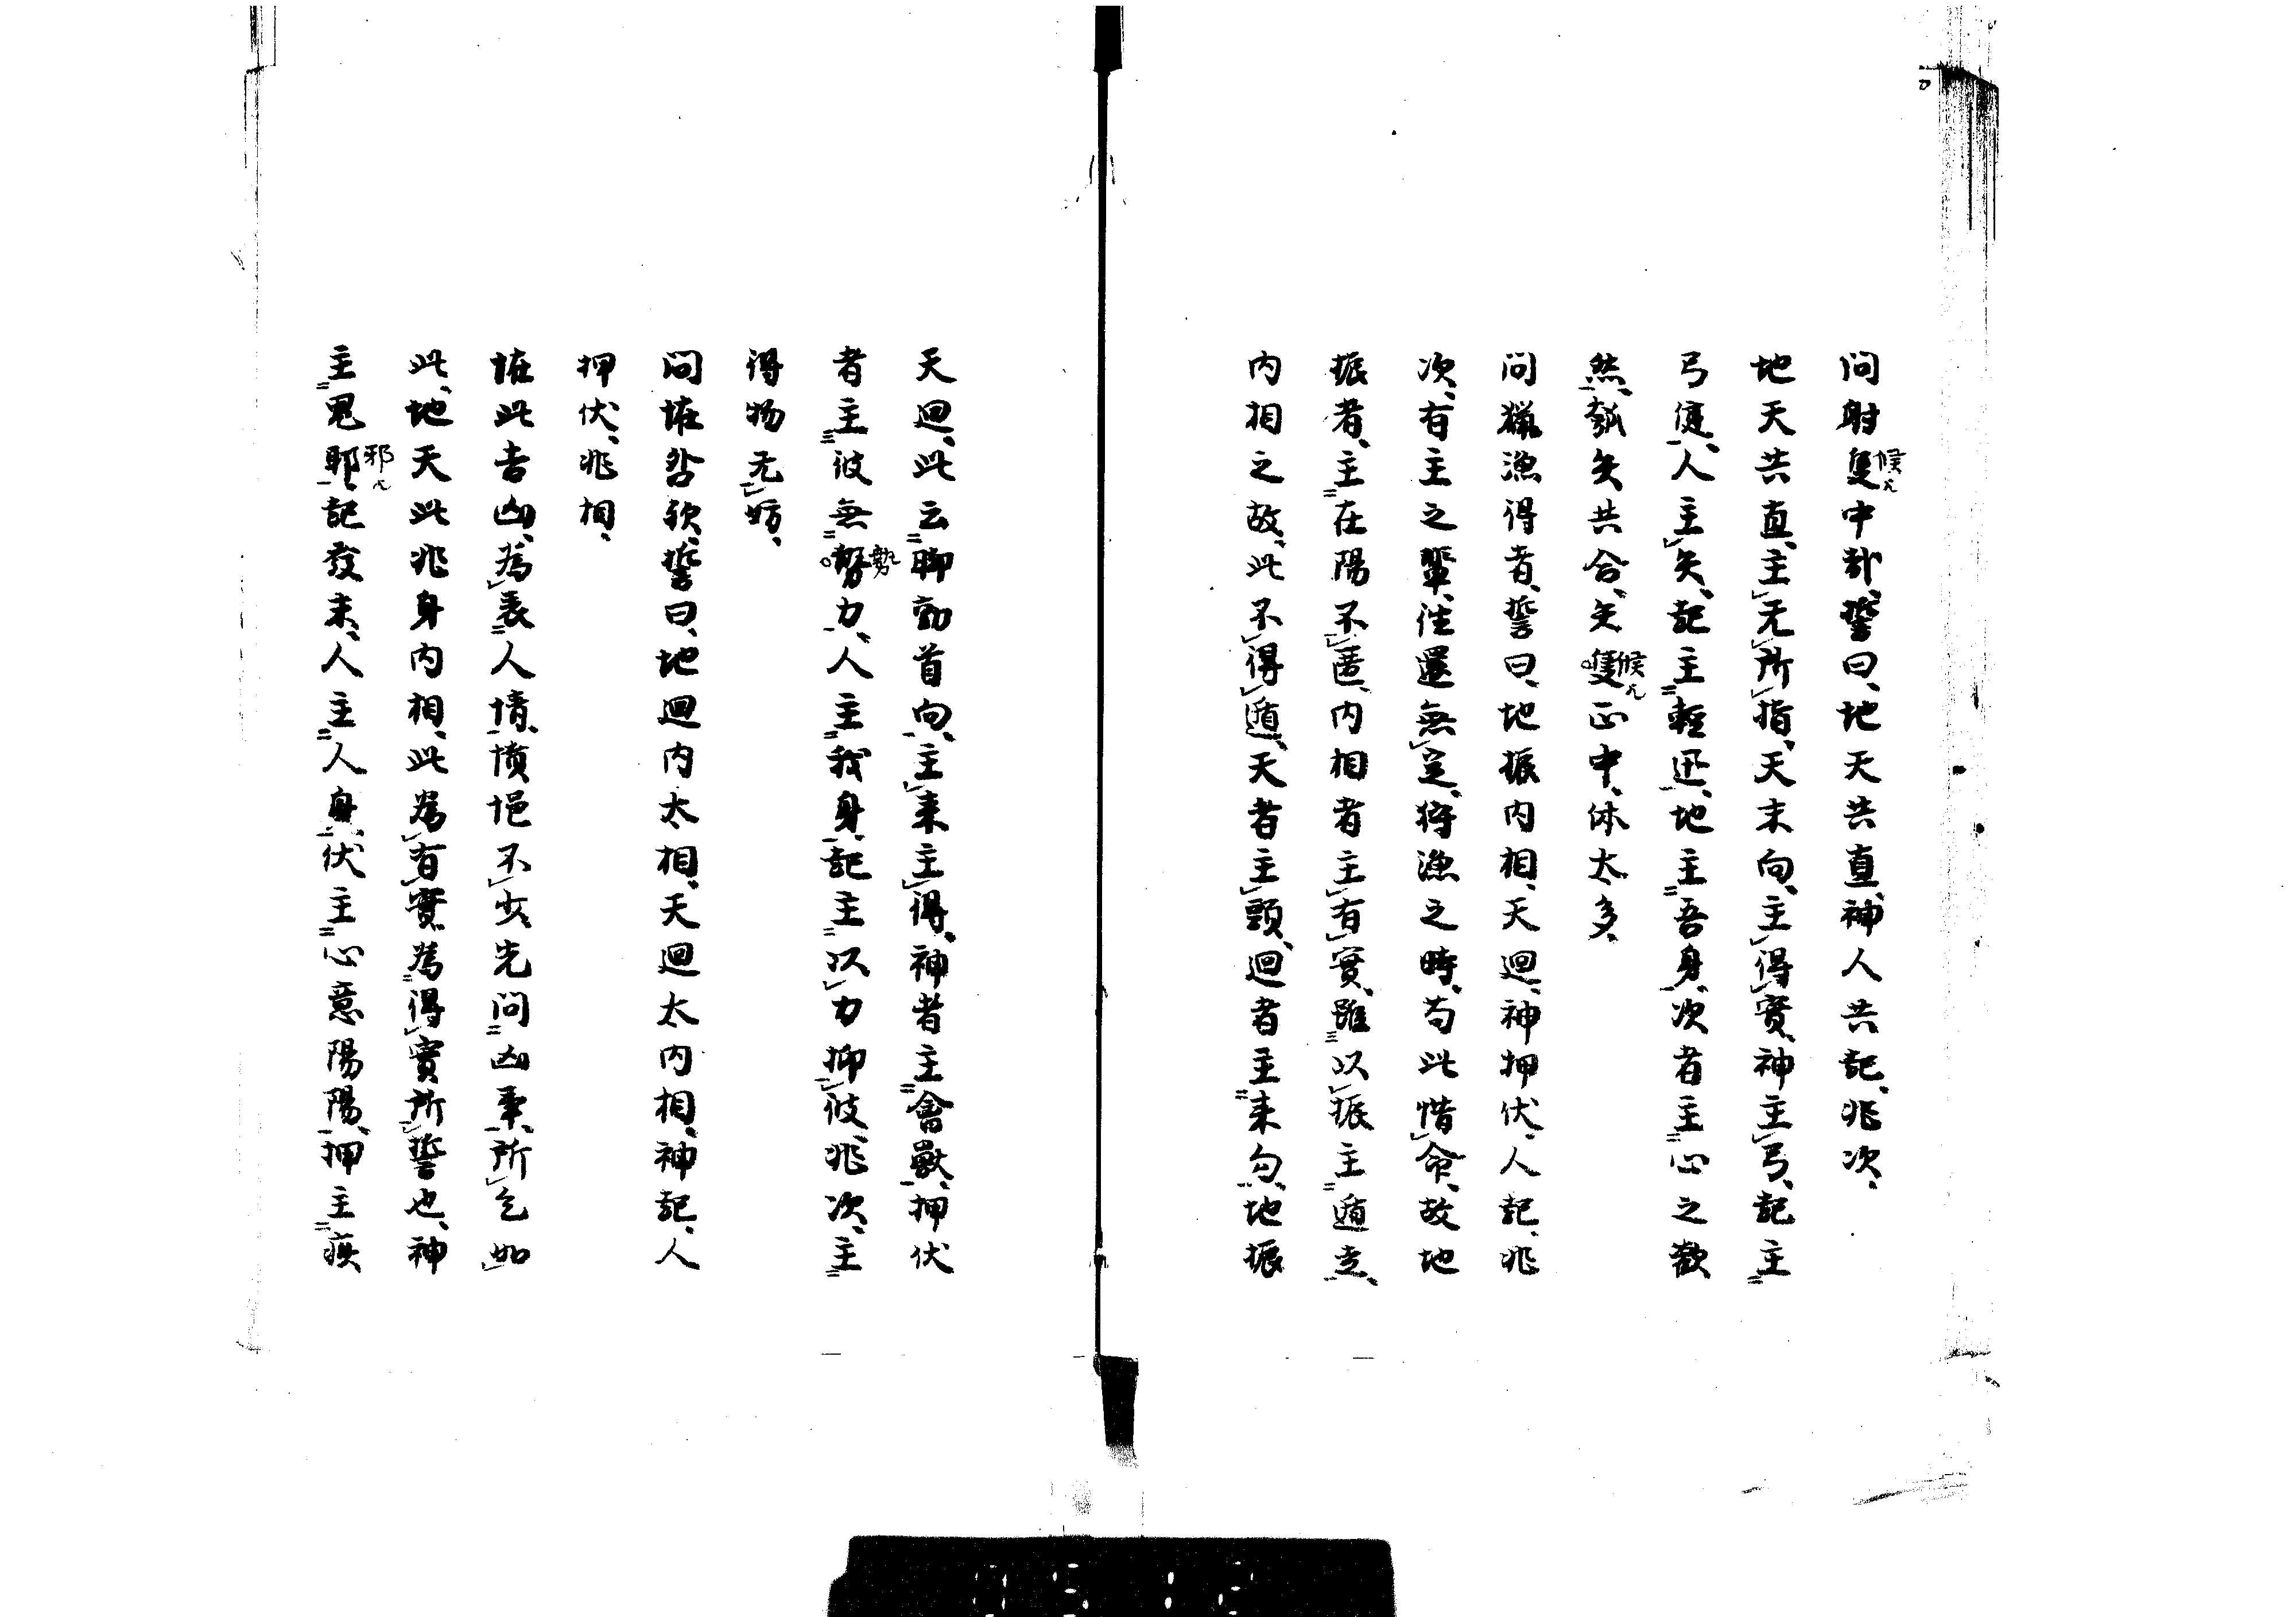 問射隻中鄣、誓曰、地天共直、神人共記、兆次、
地天共直、主无所指、天末向、主得實、神主弓、記主
弓健、人主矢、記主輕迅、地主吾身、次者主心之歡
然、弧矢共合、矢隻正中、休太多、
問獵漁得者、誓曰、地振内相、天廻、神押伏、人記、兆
次、有主之輩、往還無定、狩漁之時、苟此惜命、故地
振者、主在陽不匿、内相者主有實、雖以振主遁走、
内相之故、此不得遁、天者主頭、廻者主来勾、地振
天廻、此云聊動首向、主来主得、神者主會獸、押伏
者主彼無勢力、人主我身、記主以力抑彼、兆次、主
得物无妨、
問恠咎欤、誓曰、地廻内太相、天廻太内相、神記、人
押伏、兆相、
恠此吉凶、為表人情、憤悒不少、先問凶棄、所乞如
此、地天此兆身内相、此為有實、為得實所誓也、神
主鬼耶、記發末、人主人身、伏主心意陽陽、押主瘼